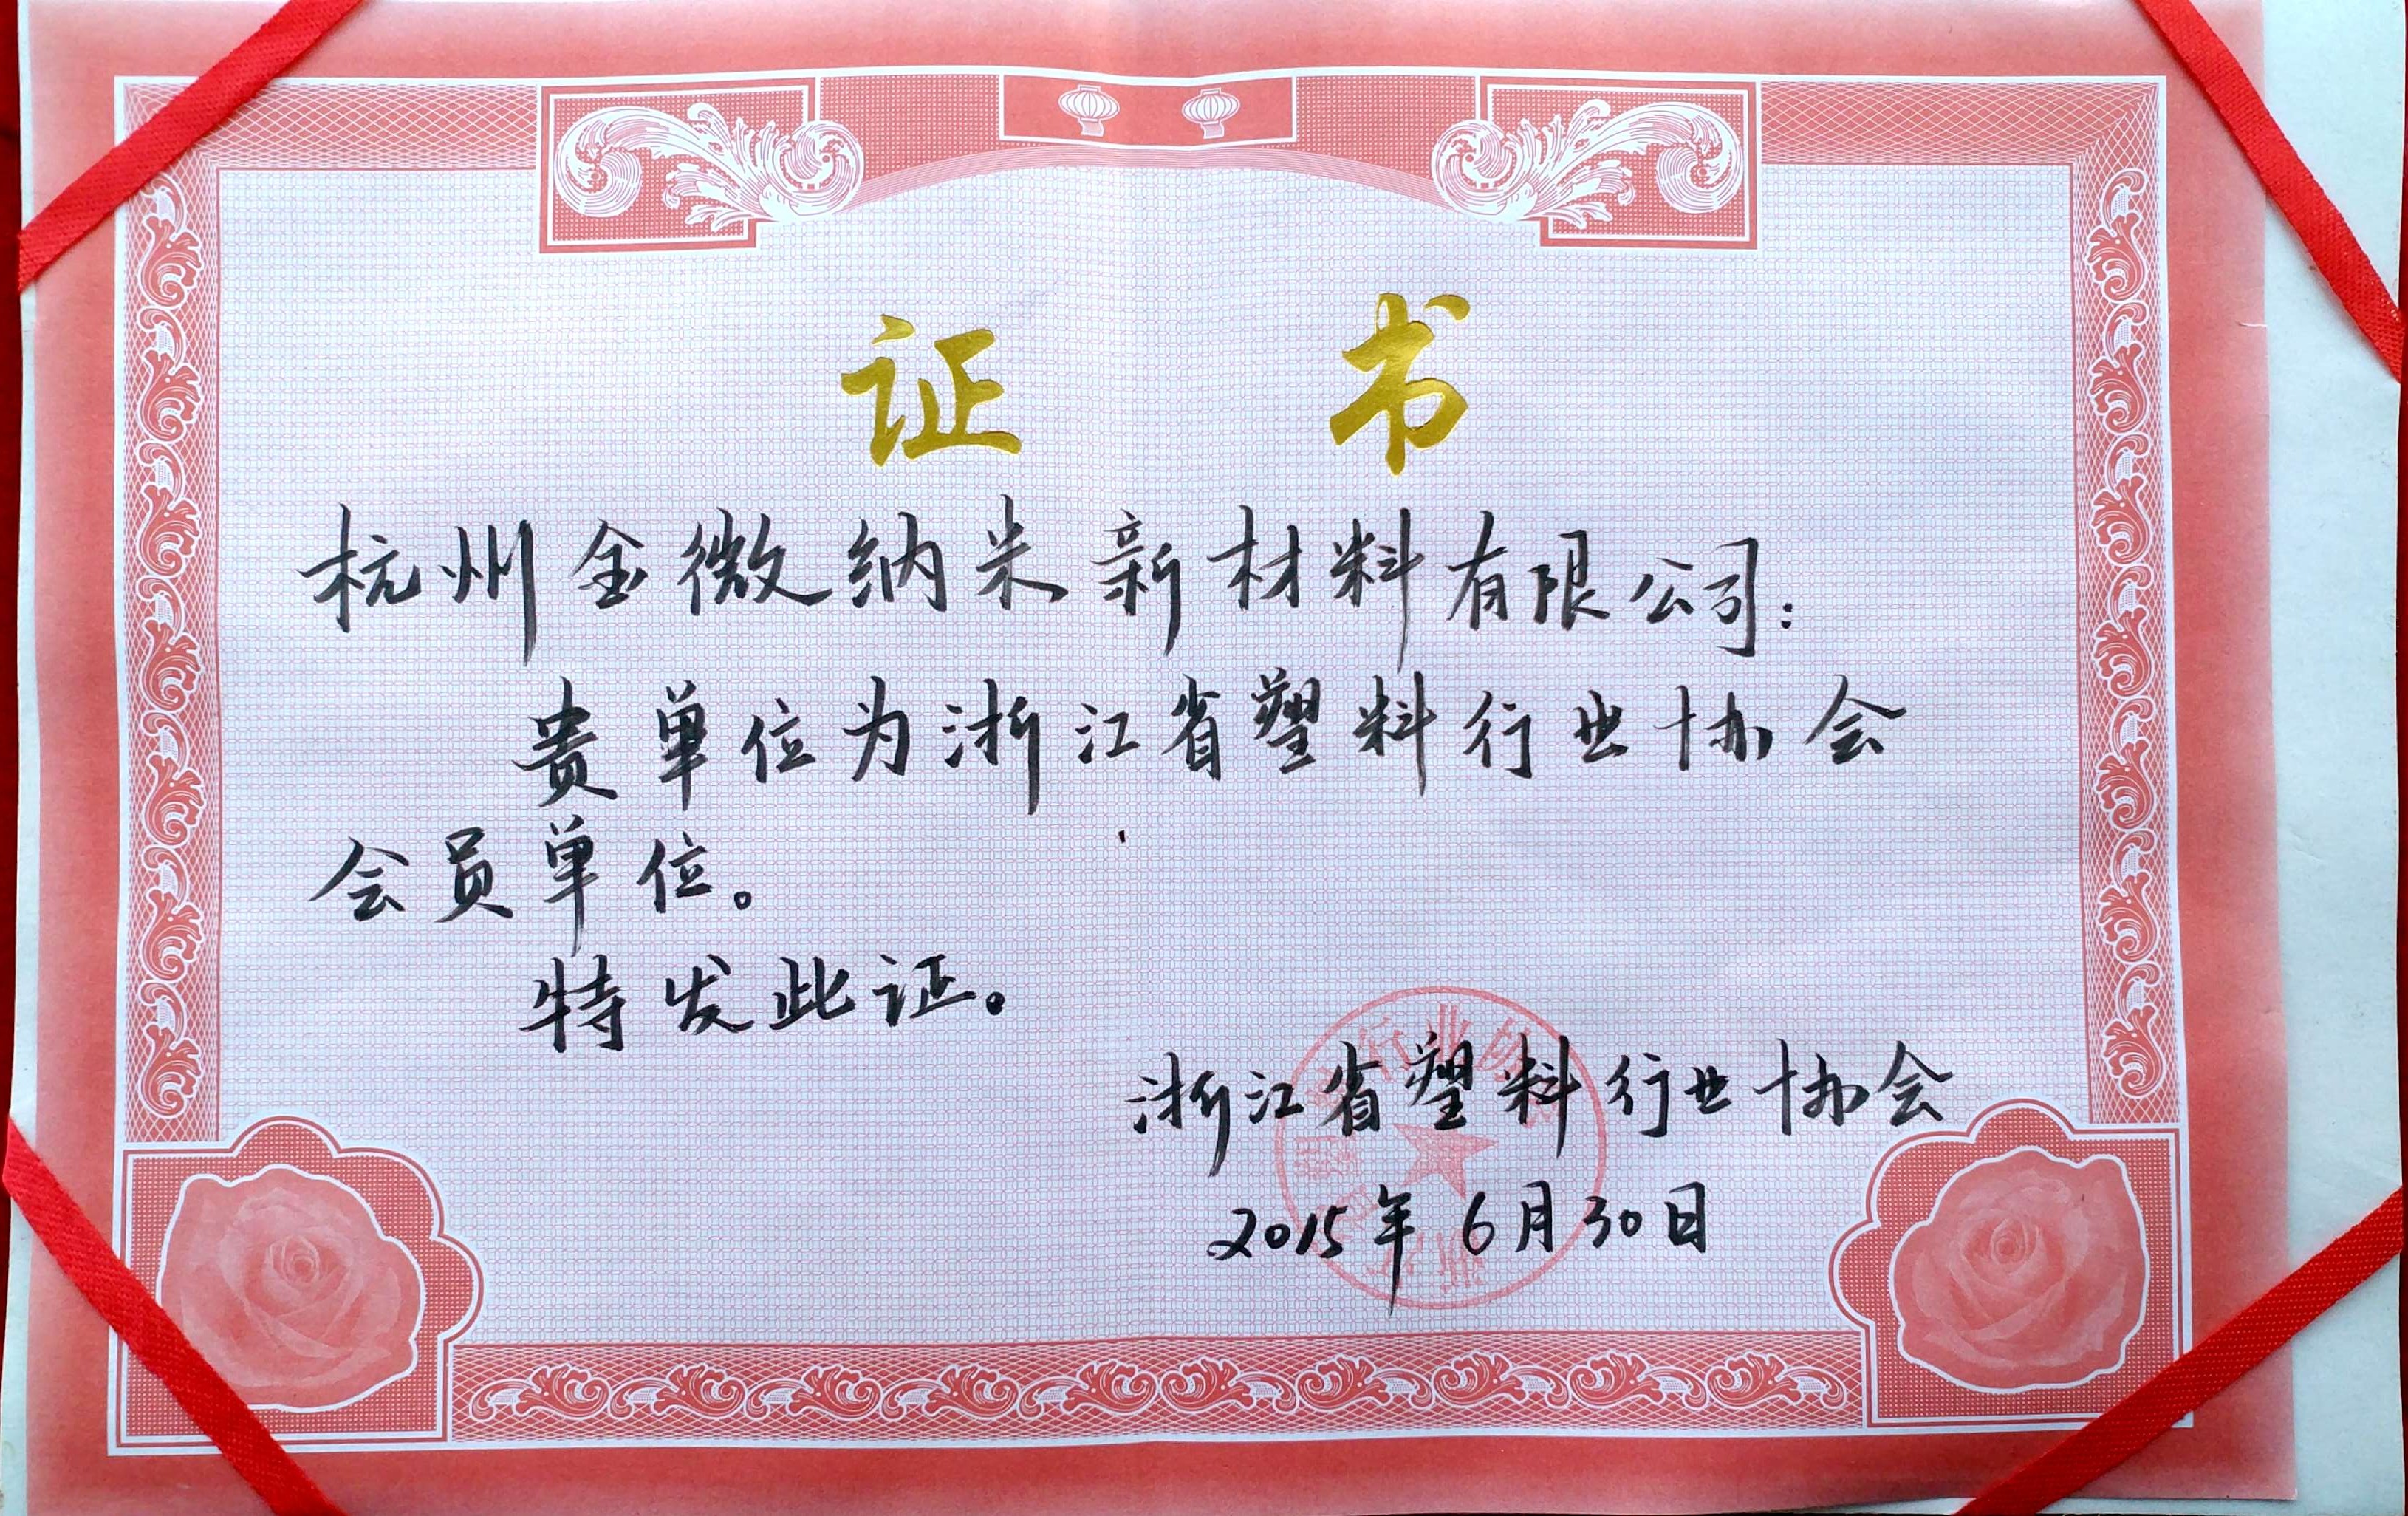 证书
杭州金微纳米新材料有限公司:
贵单位为浙江省塑料行业协会
会员单位。
特发此证。
浙江省塑料行业协会
2015年6月30日